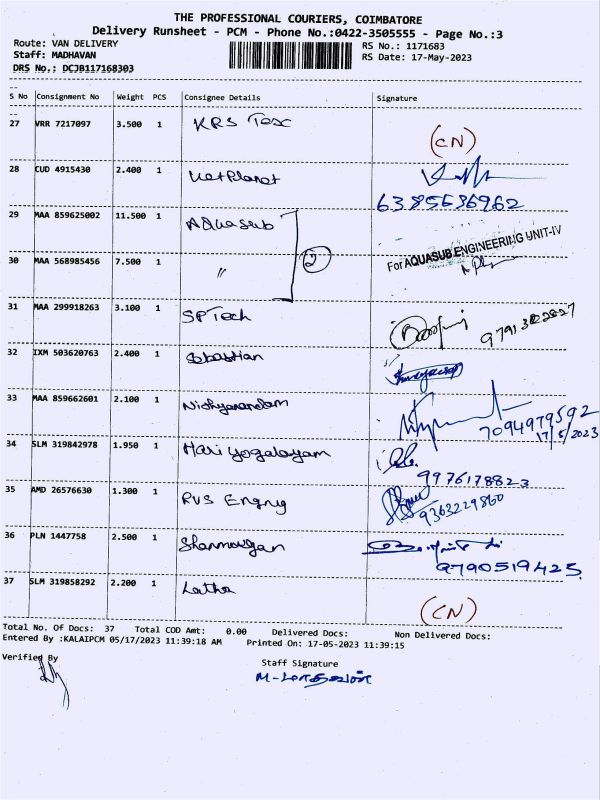 THE PROFESSIONAL COURIERS, COIMBATORE
Delivery Runsheet - PCM - Phone No.:0422-3505555 - Page No.:3
Route: VAN DELIVERY RS No.: 1171683
Staff: MADHAVAN RS Date: 17-May-2023
DRS No.: DCJB117168303
S No Consignment No Weight PCS Consignee Details Signature
27 VRR 7217097 3.500 1 KRS Tex (CN)
28 CUD 4915430 2.400 1 VetPlanet
6385636962
29 MAA 859625002 11.500 1 AQuasub
For AQUASUB ENGINEERING UNIT-IV
30 MAA 568985456 7.500 1 〃 2
31 MAA 299918263 3.100 1 SP Tech
32 IXM 503620763 2.400 1 Sebastian
33 MAA 859662601 2.100 1 Nithyanandam
7094979592
17/5/2023
34 SLM 319842978 1.950 1 Hari yogalayam
9976178823
35 AMD 26576630 1.300 1 RVS Engng
9363229860
36 PLN 1447758 2.500 1 Shanmugan
9790519425
37 SLM 319858292 2.200 1 Latha (CN)
Total No. Of Docs: 37 Total COD Amt: 0.00 Delivered Docs: Non Delivered Docs:
Entered By :KALAIPCM 05/17/2023 11:39:18 AM Printed On: 17-05-2023 11:39:15
Verified By Staff Signature
M-மாதவன்